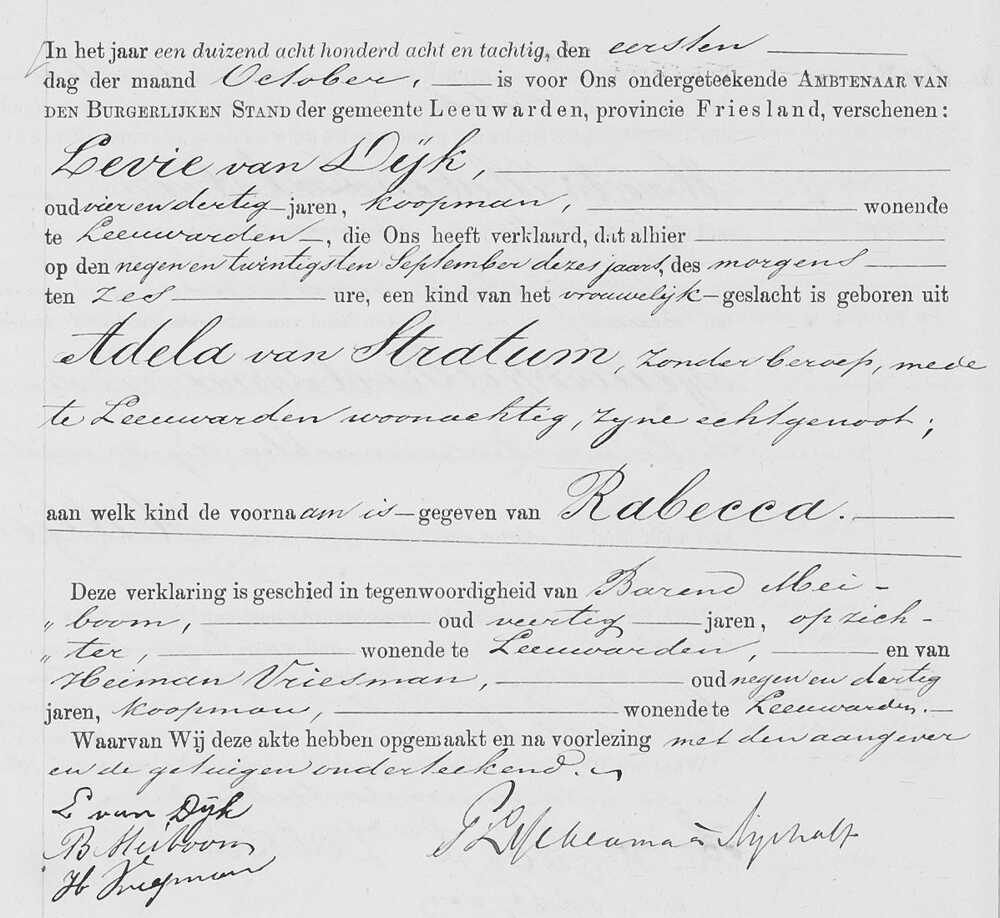 In het jaar een duizend acht honderd acht en tachtig, den eersten
dag der maand October, is voor Ons ondergeteekende AMBTENAAR VAN
DEN BURGERLIJKEN STAND der gemeente Leeuwarden, provincie Friesland, verschenen:
Levie van Dijk,
oud vier en dertig jaren, koopman, wonende
te Leeuwarden, die Ons heeft verklaard, dat alhier
op den negen en twintigsten September dezes jaars, des morgens
ten zes ure, een kind van het vrouwelijk geslacht is geboren uit
Adela van Stratum, zonder beroep, mede
te Leeuwarden woonachtig, zyne echtgenoot;
aan welk kind de voornaam is gegeven van Rabecca.
Deze verklaring is geschied in tegenwoordigheid van Barend Mei-
„ boom, oud veertig jaren, opzich-
„ ter, wonende te Leeuwarden, en van
Heiman Vriesman, oud negen en dertig
jaren, koopman, wonende te Leeuwarden.
Waarvan Wij deze akte hebben opgemaakt en na voorlezing met den aangever
en de getuigen onderteekend.
L van Dijk
B Meiboom
H Vriesman